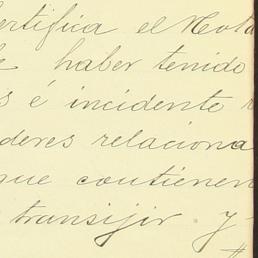 ertifica el Nota
haber tenido
s é incidente
deres relaciona
que contienen
transijir y